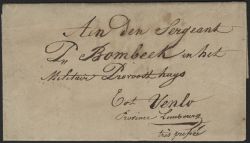 Aan den Sergeant
Bombeek in het
Militair Provoost huys
Tot Venlo
Province Limbourg